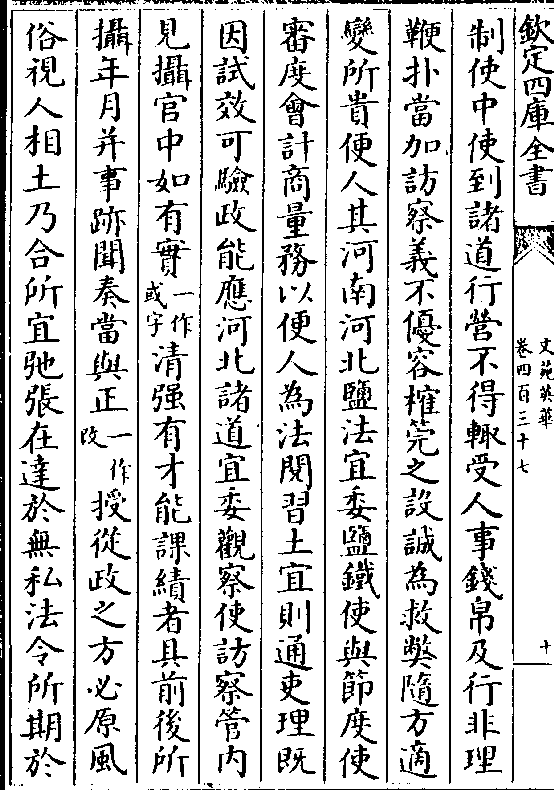 欽定四庫全書
文苑英華
卷四百三十七
十
制使中使到諸道行營不得輙受人事錢帛及行非理
鞭扑當加訪察義不優容榷筦之設誠為救弊隨方適
變所貴便人其河南河北鹽法宜委鹽鐵使與節度使
審度會計商量務以便人為法閱習土宜則通吏理既
因試效可驗政能應河北諸道宜委觀察使訪察管内
見攝官中如有實一作或字清强有才能課績者具前後所
攝年月并事跡聞奏當與正一作改授從政之方必原風
俗視人相土乃合所宜弛張在達於無私法令所期於